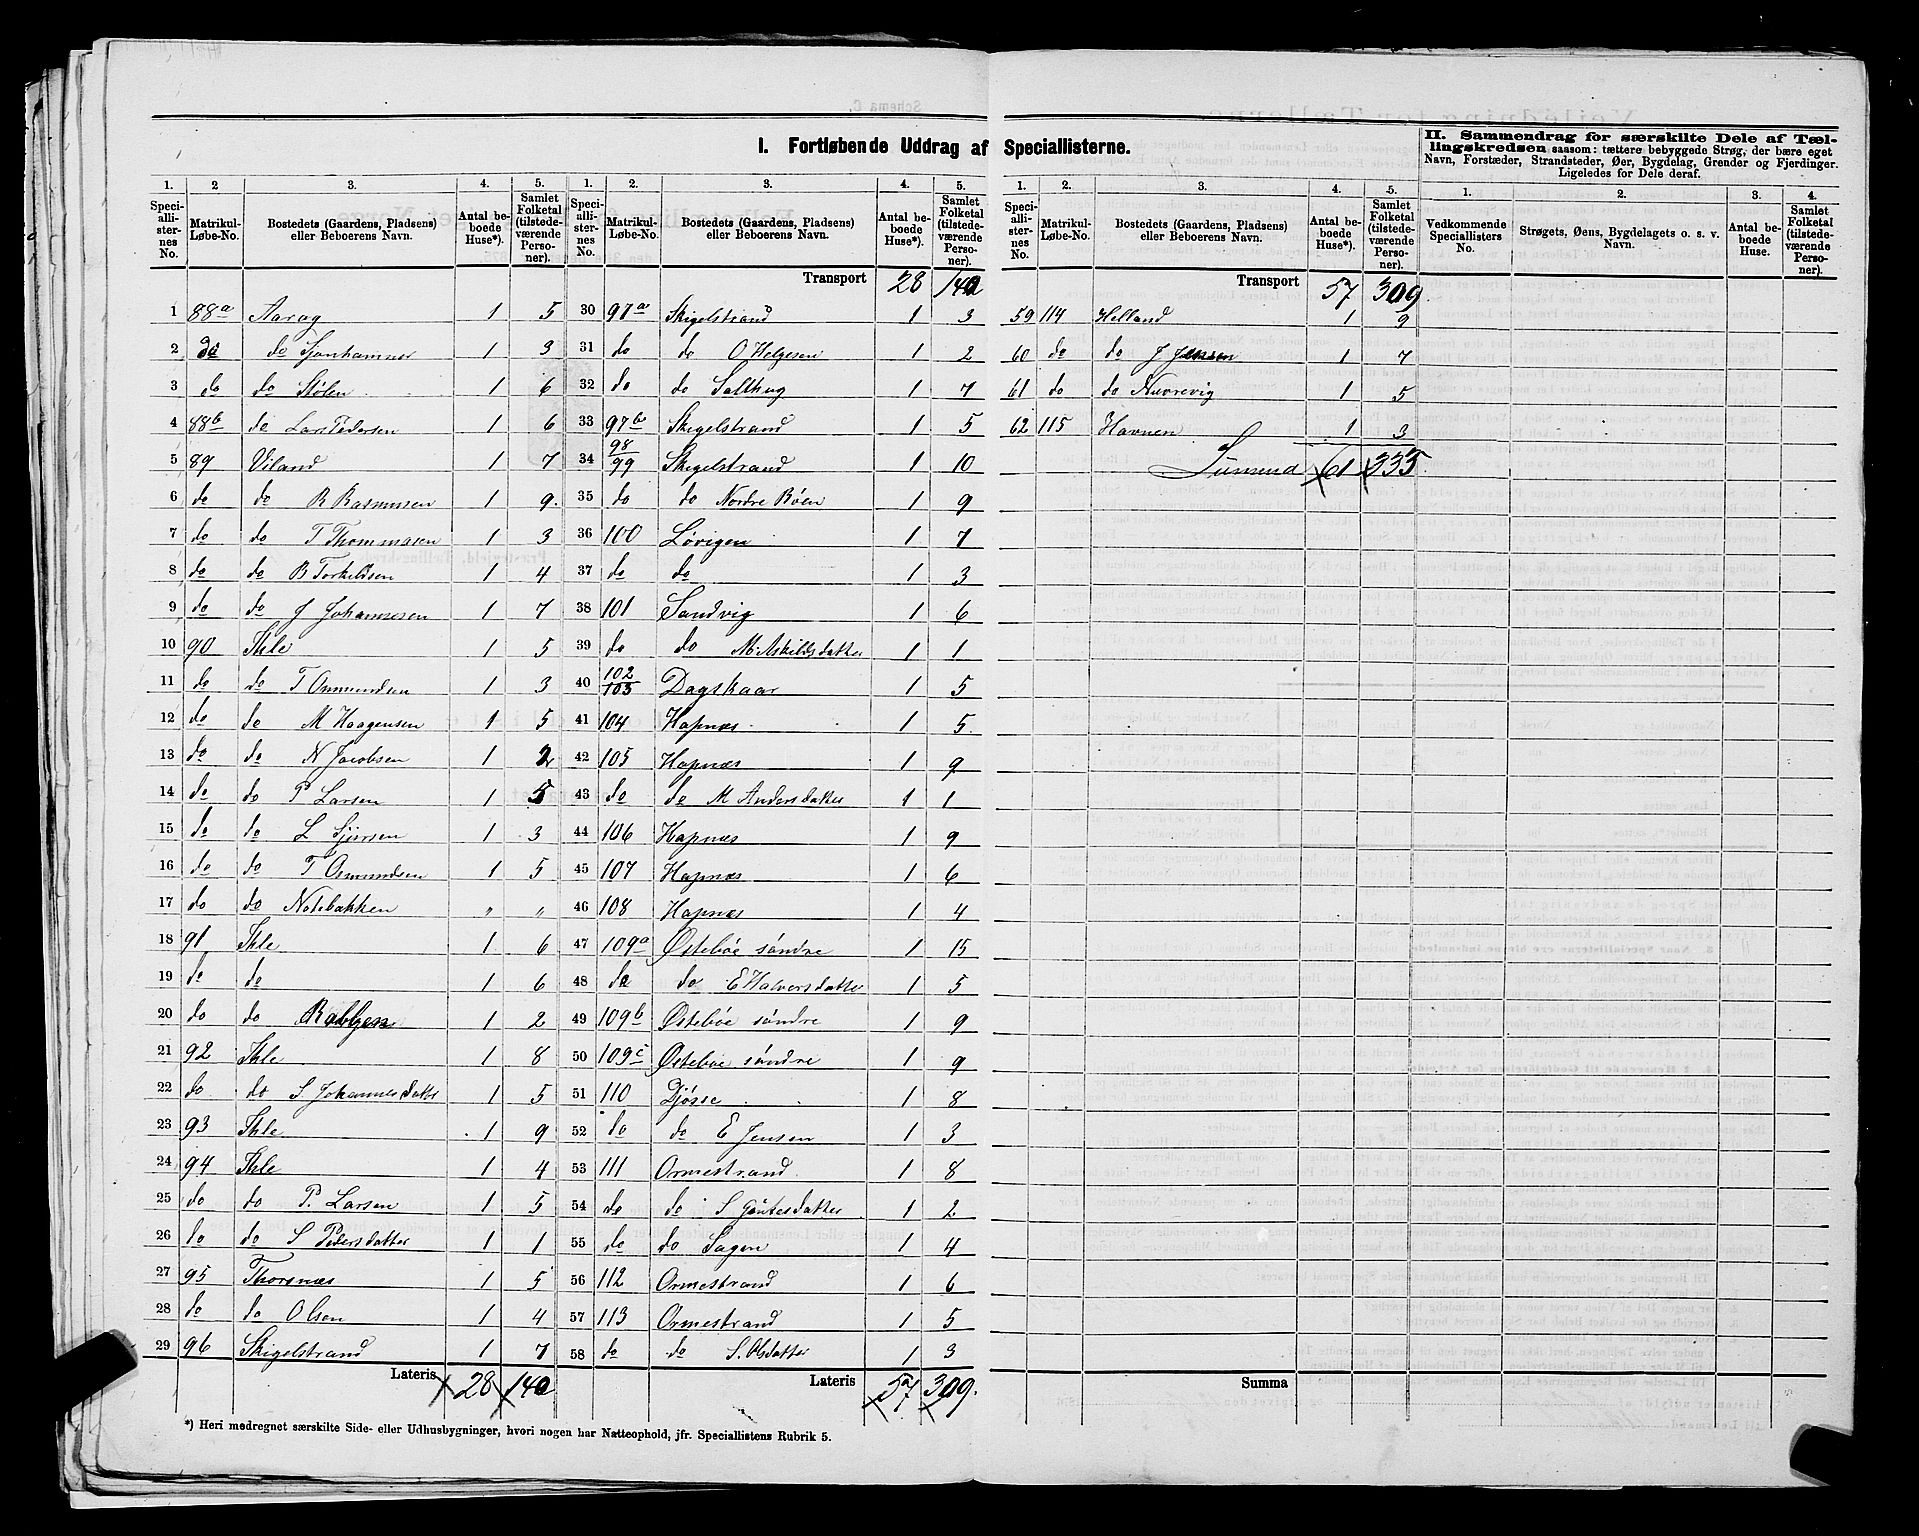 I. Fortløbende Uddrag af Speciallisterne.
1. 2 3. 4. 5.
Speciallisternes No. Matrikul-Løbe-No. Bostedets (Gaardens, Pladsens) eller Beboerens Navn. Antal beboede Huse*). Samlet Folketal (tilstedeværende Personer).
1 88a Aarag 1 5
2 do do 1 3
3 do do Stølen 1 6
4 88b do Lars Pedersen 1 6
5 89 Viland 1 7
6 do do R Rasmussen 1 9
7 do do T Thommasen 1 3
8 do do B Torkeldsen 1 4
9 do do J Johannesen 1 7
10 90 Ihle 1 5
11 do do T Osmundsen 1 3
12 do do M Haagensen 1 5
13 do do N Jacobsen 1 2
14 do do P Larsen 1 5
15 do do L Sjursen 1 3
16 do do T Osmundsen 1 5
17 do do Notebakken " "
18 91 Ihle 1 6
19 do do 1 6
20 do do 1 2
21 92 Ihle 1 8
22 do do S. Johannesdatter 1 5
23 93 Ihle 1 9
24 94 Ihle 1 4
25 do do P. Larsen 1 5
26 do do S Pedersdatter 1 1
27 95 Thorsnæs 1 5
28 do do Olsen 1 4
29 96 Skigelstrand 1 7
Lateris 28 140
1. 2. 3. 4. 5.
Speciallisternes No. Matrikul-Løbe-No. Bostedets (Gaardens, Pladsens) eller Beboerens Navn. Antal beboede Huse*). Samlet Folketal (tilstedeværende Personer).
Transport 28 140
30 97a Skigelstrand 1 3
31 do do O Helgesen 1 2
32 do do Salthug 1 7
33 97b Skigelstrand 1 5
34 98/99 Skigelstrand 1 10
35 do do Nordre Bøen 1 9
36 100 Løvigen 1 7
37 do do 1 3
38 101 Sandvig 1 6
39 do do M. Askildsdatter 1 1
40 102/103 Dagskaar 1 5
41 104 Hapnæs 1 5
42 105 Hapnæs 1 9
43 do do M Andersdatter 1 1
44 106 Hapnæs 1 9
45 107 Hapnæs 1 6
46 108 Hapnæs 1 4
47 109a Østebøe søndre 1 15
48 do do E Halvorsdatter 1 5
49 109b Østebøe søndre 1 9
50 109c Østebøe søndre 1 9
51 110 Djøsse 1 8
52 do do E Jensen 1 3
53 111 Ormestrand 1 8
54 do do S Gautesdatter 1 2
55 do do Sagen 1 4
56 112 Ormestrand 1 6
57 113 Ormestrand 1 5
58 do do S. Olsdatter 1 3
Lateris 57 309.
*) Heri medregnet særskilte Side- eller Udhusbygninger, hvori nogen har Natteophold, jfr. Speciallistens Rubrik 5.
1. 2. 3. 4. 5.
Speciallisternes No. Matrikul-Løbe-No. Bostedets (Gaardens, Pladsens) eller Beboerens Navn. Antal beboede Huse*). Samlet Folketal (tilstedeværende Personer).
Transport 57 309
59 114 Helland 1 9
60 do do J Jensen 1 7
61 do do 1 5
62 115 Havnen 1 3
61 333
Summa
II. Sammendrag for særskilte Dele af Tællingskredsen saasom: tættere bebyggede Strøg, der bære eget Navn, Forstæder, Strandsteder, Øer, Bygdelag, Grender og Fjerdinger. Ligeledes for Dele deraf.
1. 2. 3. 4.
Vedkommende Speciallisters No. Strøgets, Øens, Bygdelagets o. s. v. Navn. Antal beboede Huse. Samlet Folketal (tilstedeværende Personer).